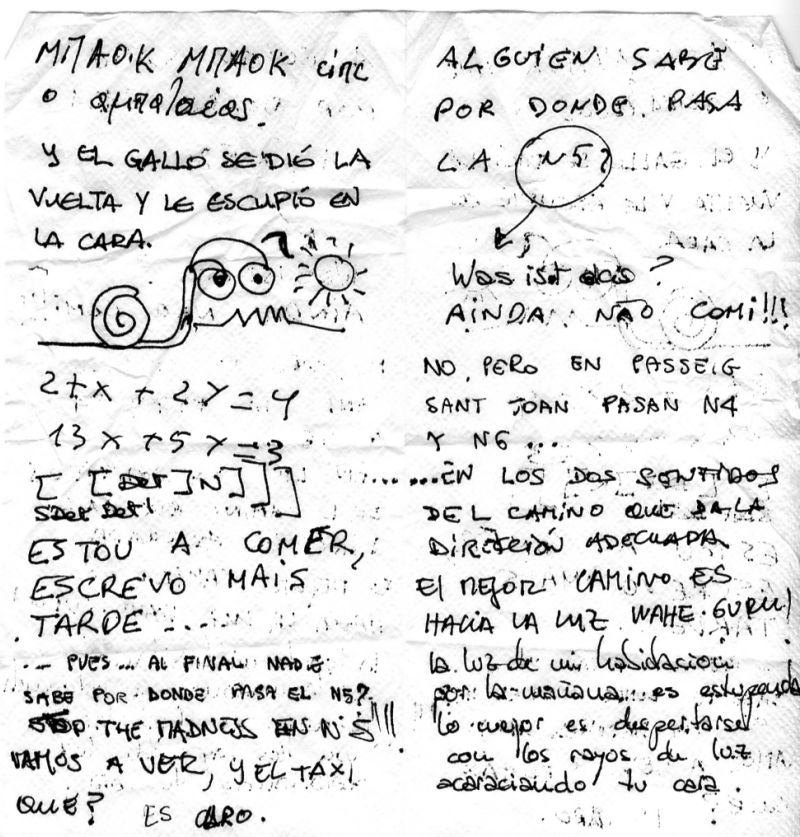 ΜΠΑΟΚ ΜΠΑΟΚ είπε
ο αμπαλαέας.
Y EL GALLO SE DIÓ LA
VUELTA Y LE ESCUPIÓ EN
LA CARA.
2+x + 2y = 4
13x + 5y = 3
[ [Det] N] ] ]
SDet Det'
ESTOU A COMER,
ESCREVO MAIS
TARDE ....
... PUES ... AL FINAL NADIE
SABE POR DONDE PASA EL N5?
STOP THE MADNESS EN N5!!!
VAMOS A VER, Y EL TAXI
QUE? ES CARO.
ALGUIEN SABE
POR DONDE PASA
LA N5?
Was ist das?
AINDA NÃO COMI!!!
NO, PERO EN PASSEIG
SANT JOAN PASAN N4
Y N6 ...
...... EN LOS DOS SENTIDOS
DEL CAMINO QUE DA LA
DIRECCIÓN ADECUADA
El MEJOR CAMINO ES
HACIA LA LUZ WAHE GURU!
la luz de mi habidacion
por la mañana es estupenda
lo mejor es despertarse
con los rayos de luz
acaraciando tu cara.